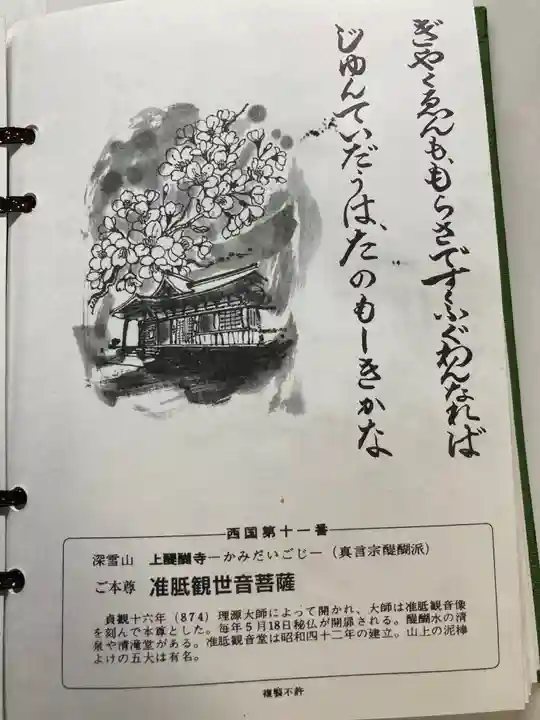 ぎやくゑんも、もらさですくふぐわんなれば
じゆんていだうは、たのもしきかな
西国第十一番
深雪山 上醍醐寺―かみだいごじ―（真言宗醍醐派）
ご本尊 准胝観世音菩薩
貞観十六年（874）理源大師によって開かれ、大師は准胝観音像
を刻んで本尊とした。毎年５月18日秘仏が開扉される。醍醐水の清
泉や清滝堂がある。准胝観音堂は昭和四十二年の建立。山上の泥棒
よけの五大は有名。
複製不許